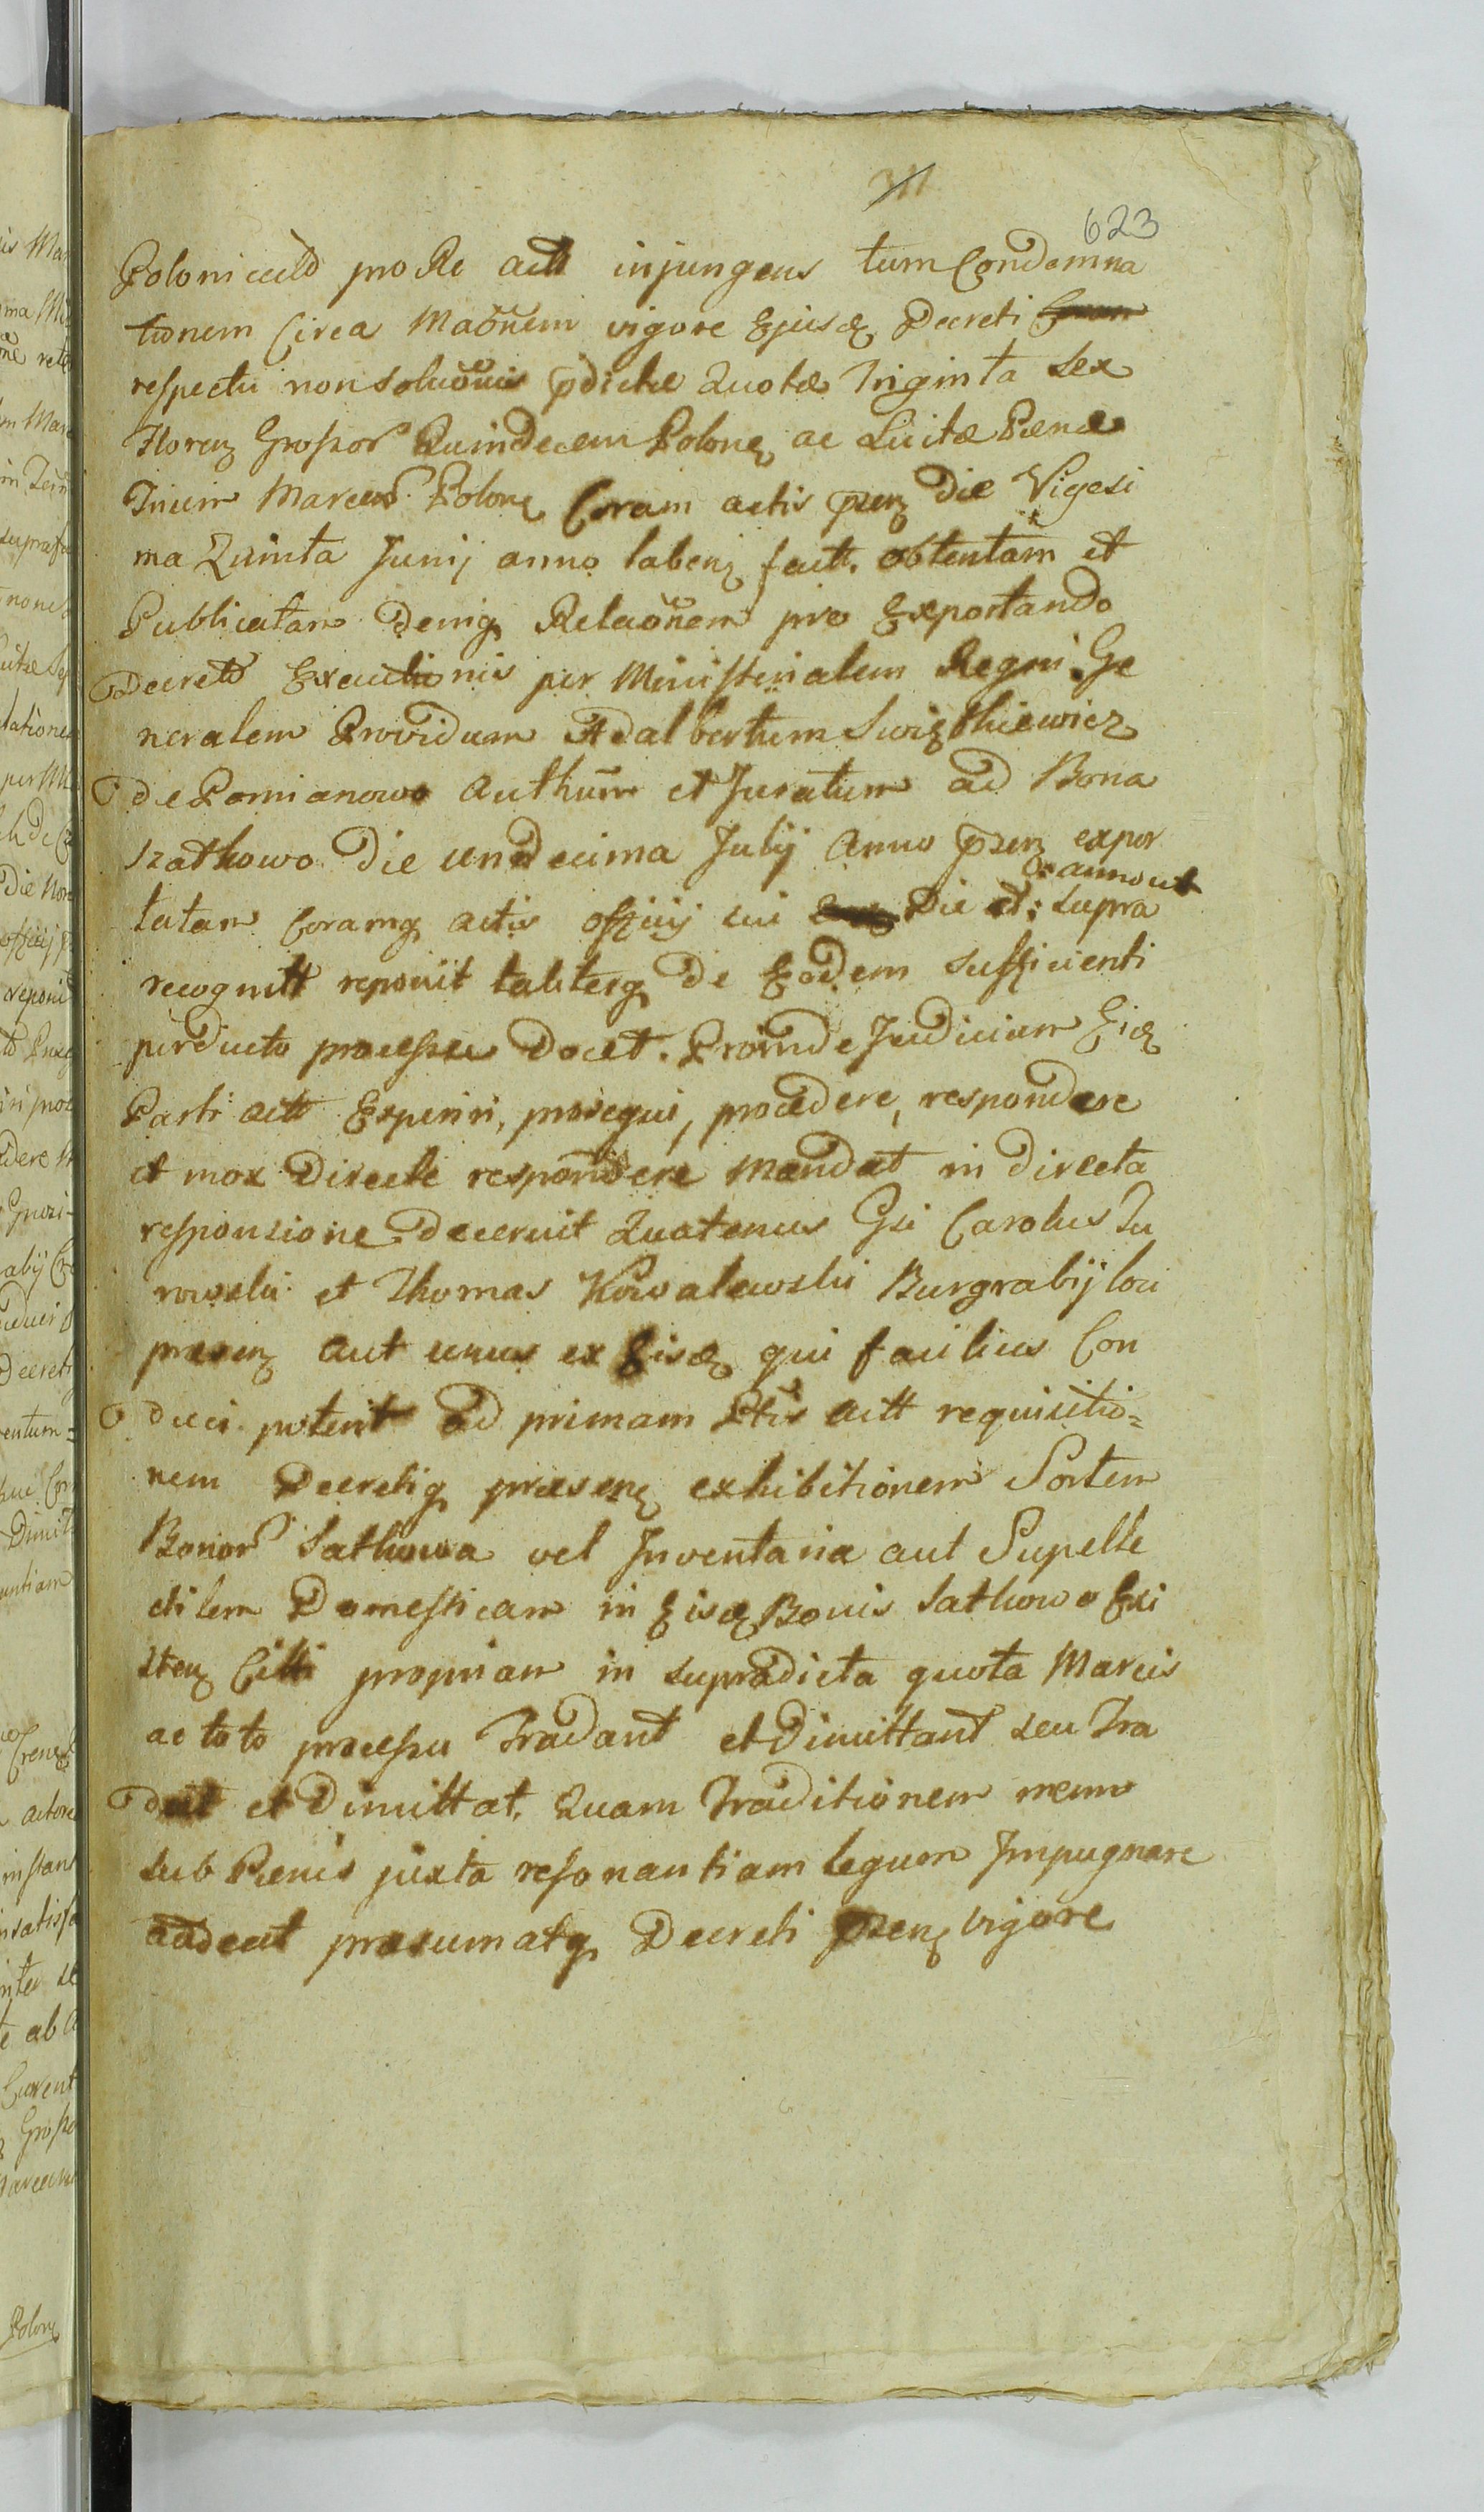 311
623
Polonicald pro Re actt injungens tum Condemna
tionem Circa Maõnem vigore Ejusdꝫ Decreti
respectu non soluõnis p̄dictæ Quotæ Triginta sex
Florenꝫ Grossor Quindecem Polonꝫ ac Luitæ Pænæ
Trium Marcar Polonꝫ Coram actis p̄senꝫ Die Vigesi
ma Quinta Junij anno labenꝫ fact. obtentam et
Publicatam Deniqꝫ Relaõnem pro Exportando
Decreto Executionis per Ministerialem Regni Ge
neralem Providum Adalbertum Swięthiewicz
de Pomianowo Authum et Juratum ad Bona
Szathowo Die undecima Julij Anno p̄senꝫ expor
& anno ut
tatam Coramqꝫ actis officij sui Die et: supra
recognitt reponit taliterqꝫ De Eodem sufficienti
perducto processu Docet. Proinde Judicium Eidꝫ
Parti actt Experiri, prosequi, procedere, respondere
et mox Directe respondere Mandat in directa
responsione decernit Quatenus Gsi Carolus Tu
rowski et Thomas Kowalewski Burgrabij loci
præsenꝫ aut unus ex Eisdꝫ qui facilius Con
duci poterit ad primam Ptis actt requisitio=
nem Decretiqꝫ præsenꝫ exhibitionem Sortem
Bonor Sathowa vel Inventaria aut Supelle
ctilem Domesticam in Eisdꝫ Bonis Sathowo Exi
stenꝫ Citti propriam in supradicta quota Marcis
ac toto processu Tradant et Dimittant seu Tra
dat et Dimittat, Quam Traditionem nemo
sub Pænis juxta resonantiam legum Impugnare
audeat præsumatqꝫ Decreti p̄senꝫ vigore